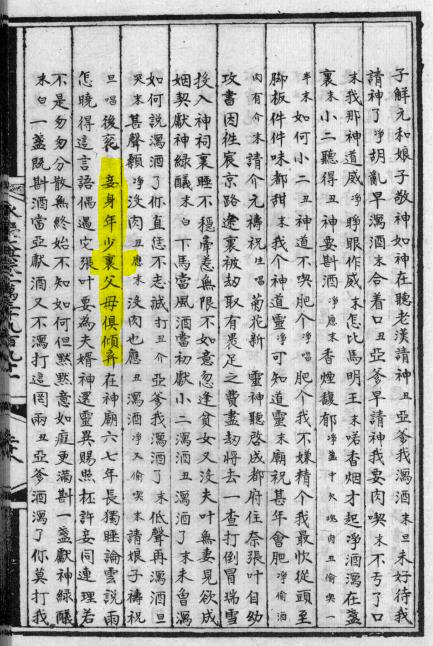 子解元和娘子敬神如神在聽老漢請神丑亞爹我瀉酒末旦未好待我
請神了淨胡亂早瀉酒末合着口丑亞爹早請神我要肉喫末不亏了口
末我那神道威淨睜眼作威末怎比馬明王末喏香烟才起淨酒瀉在盞
裏末小二聽得丑神要斟酒淨應末香煙馥郁淨盞十大塊肉丑偷喫一
半末如何小二丑神道不喫肥个淨唱肥个我不嫌精个我最忺從頭至
脚板件件味都甜末我个神道靈淨可知道靈末廟祝甚年會肥淨偷酒
肉有介末請介元禱祝生唱菊花新靈神聽啓成都府住奈張叶自幼
攻書因往宸京路途裏被劫取有裹足之費盡劫將去一查打倒冒瑞雪
投入神祠裏睡不穩惹無限不如意忽逢貧女又沒夫叶無妻見欲成
姻契獻神綠醑末白下馬當風酒當初獻小二瀉酒丑瀉酒了末未曾瀉
如何説瀉酒了你直恁不志誠打丑介亞爹我瀉酒了末低聲再瀉酒旦
哭末甚聲頼淨沒肉丑應末沒肉也應丑瀉酒淨又偷喫末請娘子禱祝
旦唱後衮妾身年少裏父母俱傾弃在神廟六七年長獨睡論雲説雨
怎曉得這言語偶遇它張叶要為夫婿神還靈異賜照杯許妾同連理若
不是匆匆分散無終始不知如何但黙黙意如癡更滿斟一盞獻神綠醑
末白一盞既斟酒當亞獻酒又不瀉打這罔兩丑亞爹酒瀉了你莫打我